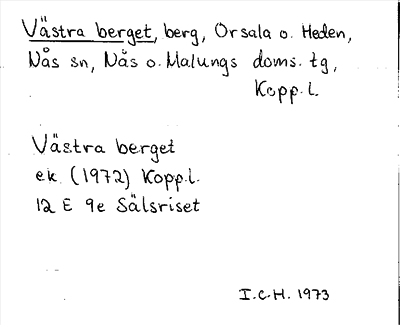 Västra berget, berg, Orsala o. Heden,
Nås sn, Nås o. Malungs doms. tg,
Kopp. L.
Västra berget
ek. (1972) Kopp.l.
12 E 9e Sälsriset
I.C.H. 1973